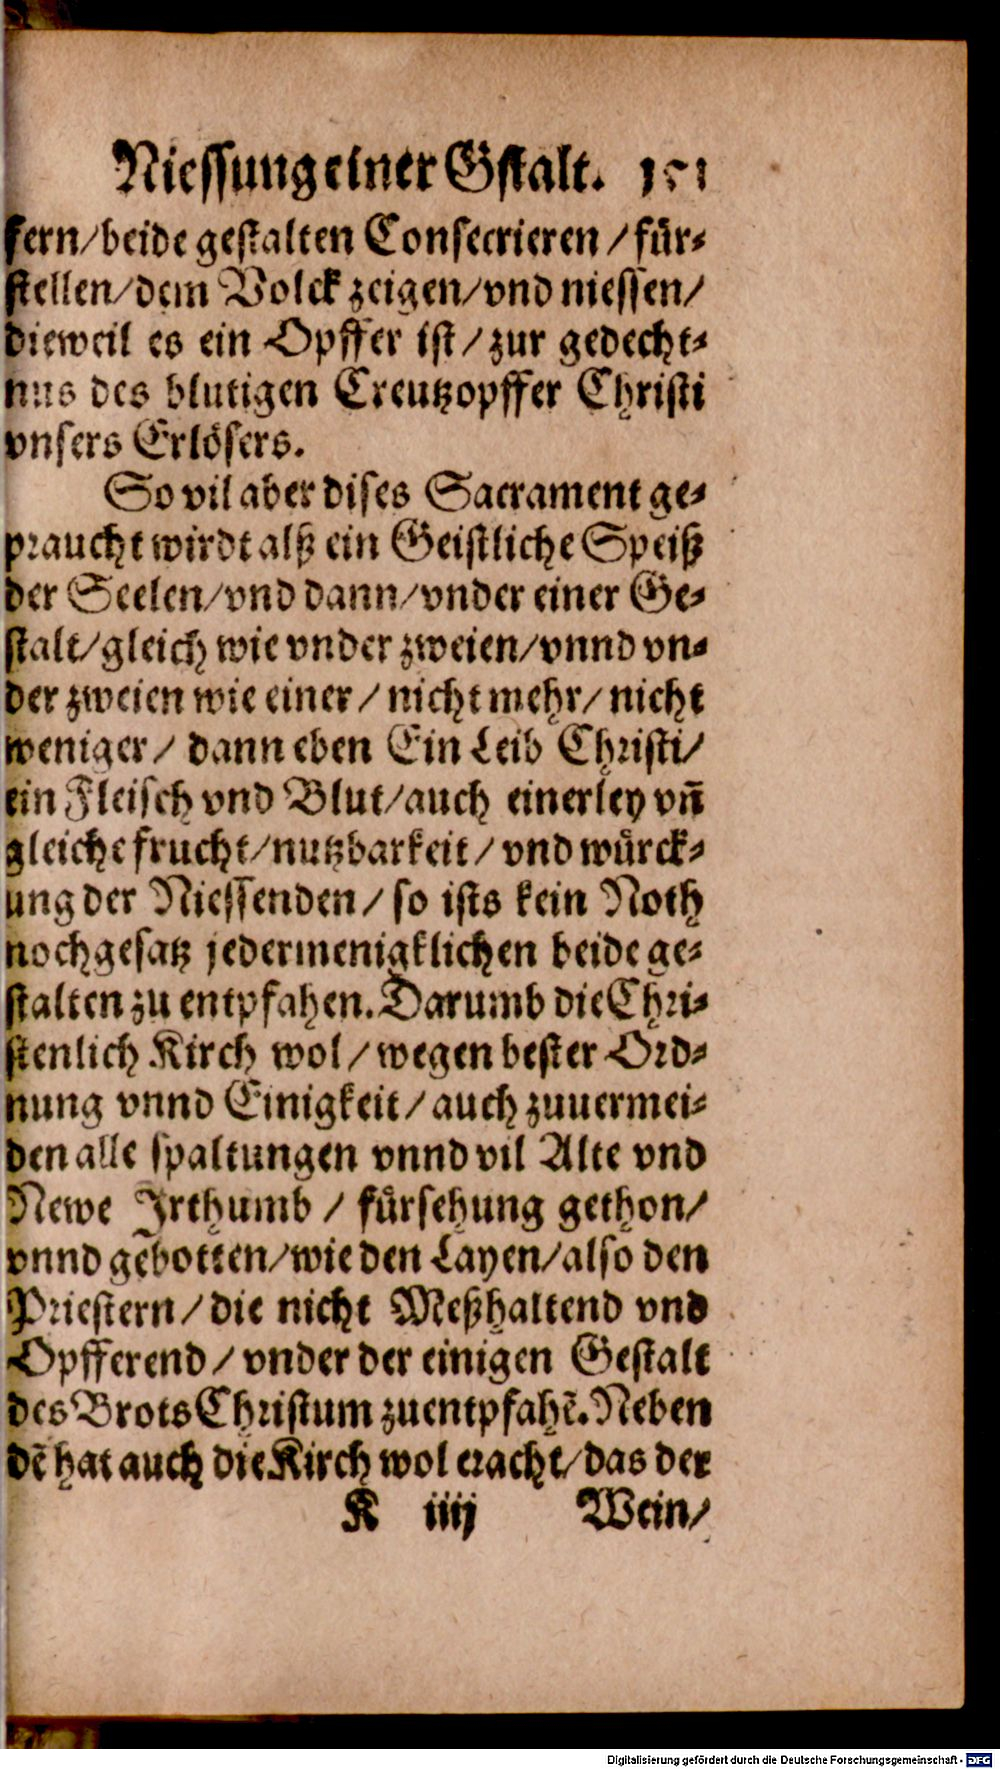 Niessung einer Gstalt. 151
fern/beide gestalten Consecrieren/für-
stellen/dem Volck zeigen/vnd niessen/
dieweil es ein Opffer ist/zur gedecht-
nus des blutigen Creutzopffer Christi
vnsers Erlösers.
So vil aber dises Sacrament ge-
praucht wirdt alß ein Geistliche Speiß
der Seelen/vnd dann/vnder einer Ge-
stalt/gleich wie vnder zweien/vnnd vn-
der zweien wie einer/nicht mehr/nicht
weniger/dann eben Ein Leib Christi/
ein Fleisch vnd Blut/auch einerley vñ
gleiche frucht/nutzbarkeit/vnd würck-
ung der Niessenden/so ists kein Noth
noch gesatz jedermenigklichen beide ge-
stalten zu entpfahen. Darumb die Chri-
stenlich Kirch wol/wegen bester Ord-
nung vnnd Einigkeit/auch zuuermei-
den alle spaltungen vnnd vil Alte vnd
Newe Irthumb/fürsehung gethon/
vnnd gebotten/wie den Layen/also den
Priestern/die nicht Meßhaltend vnd
Opfferend/vnder der einigen Gestalt
des Brots Christum zuentpfahẽ. Neben
dẽ hat auch die Kirch wol eracht/das der
K iiij Wein/
Digitalisierung gefördert durch die Deutsche Forschungsgemeinschaft - DFG